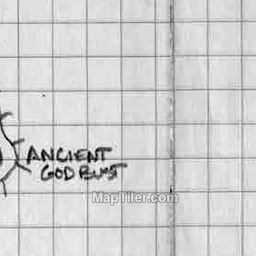 ANCIENT
GOD BUST
MapTiler.com